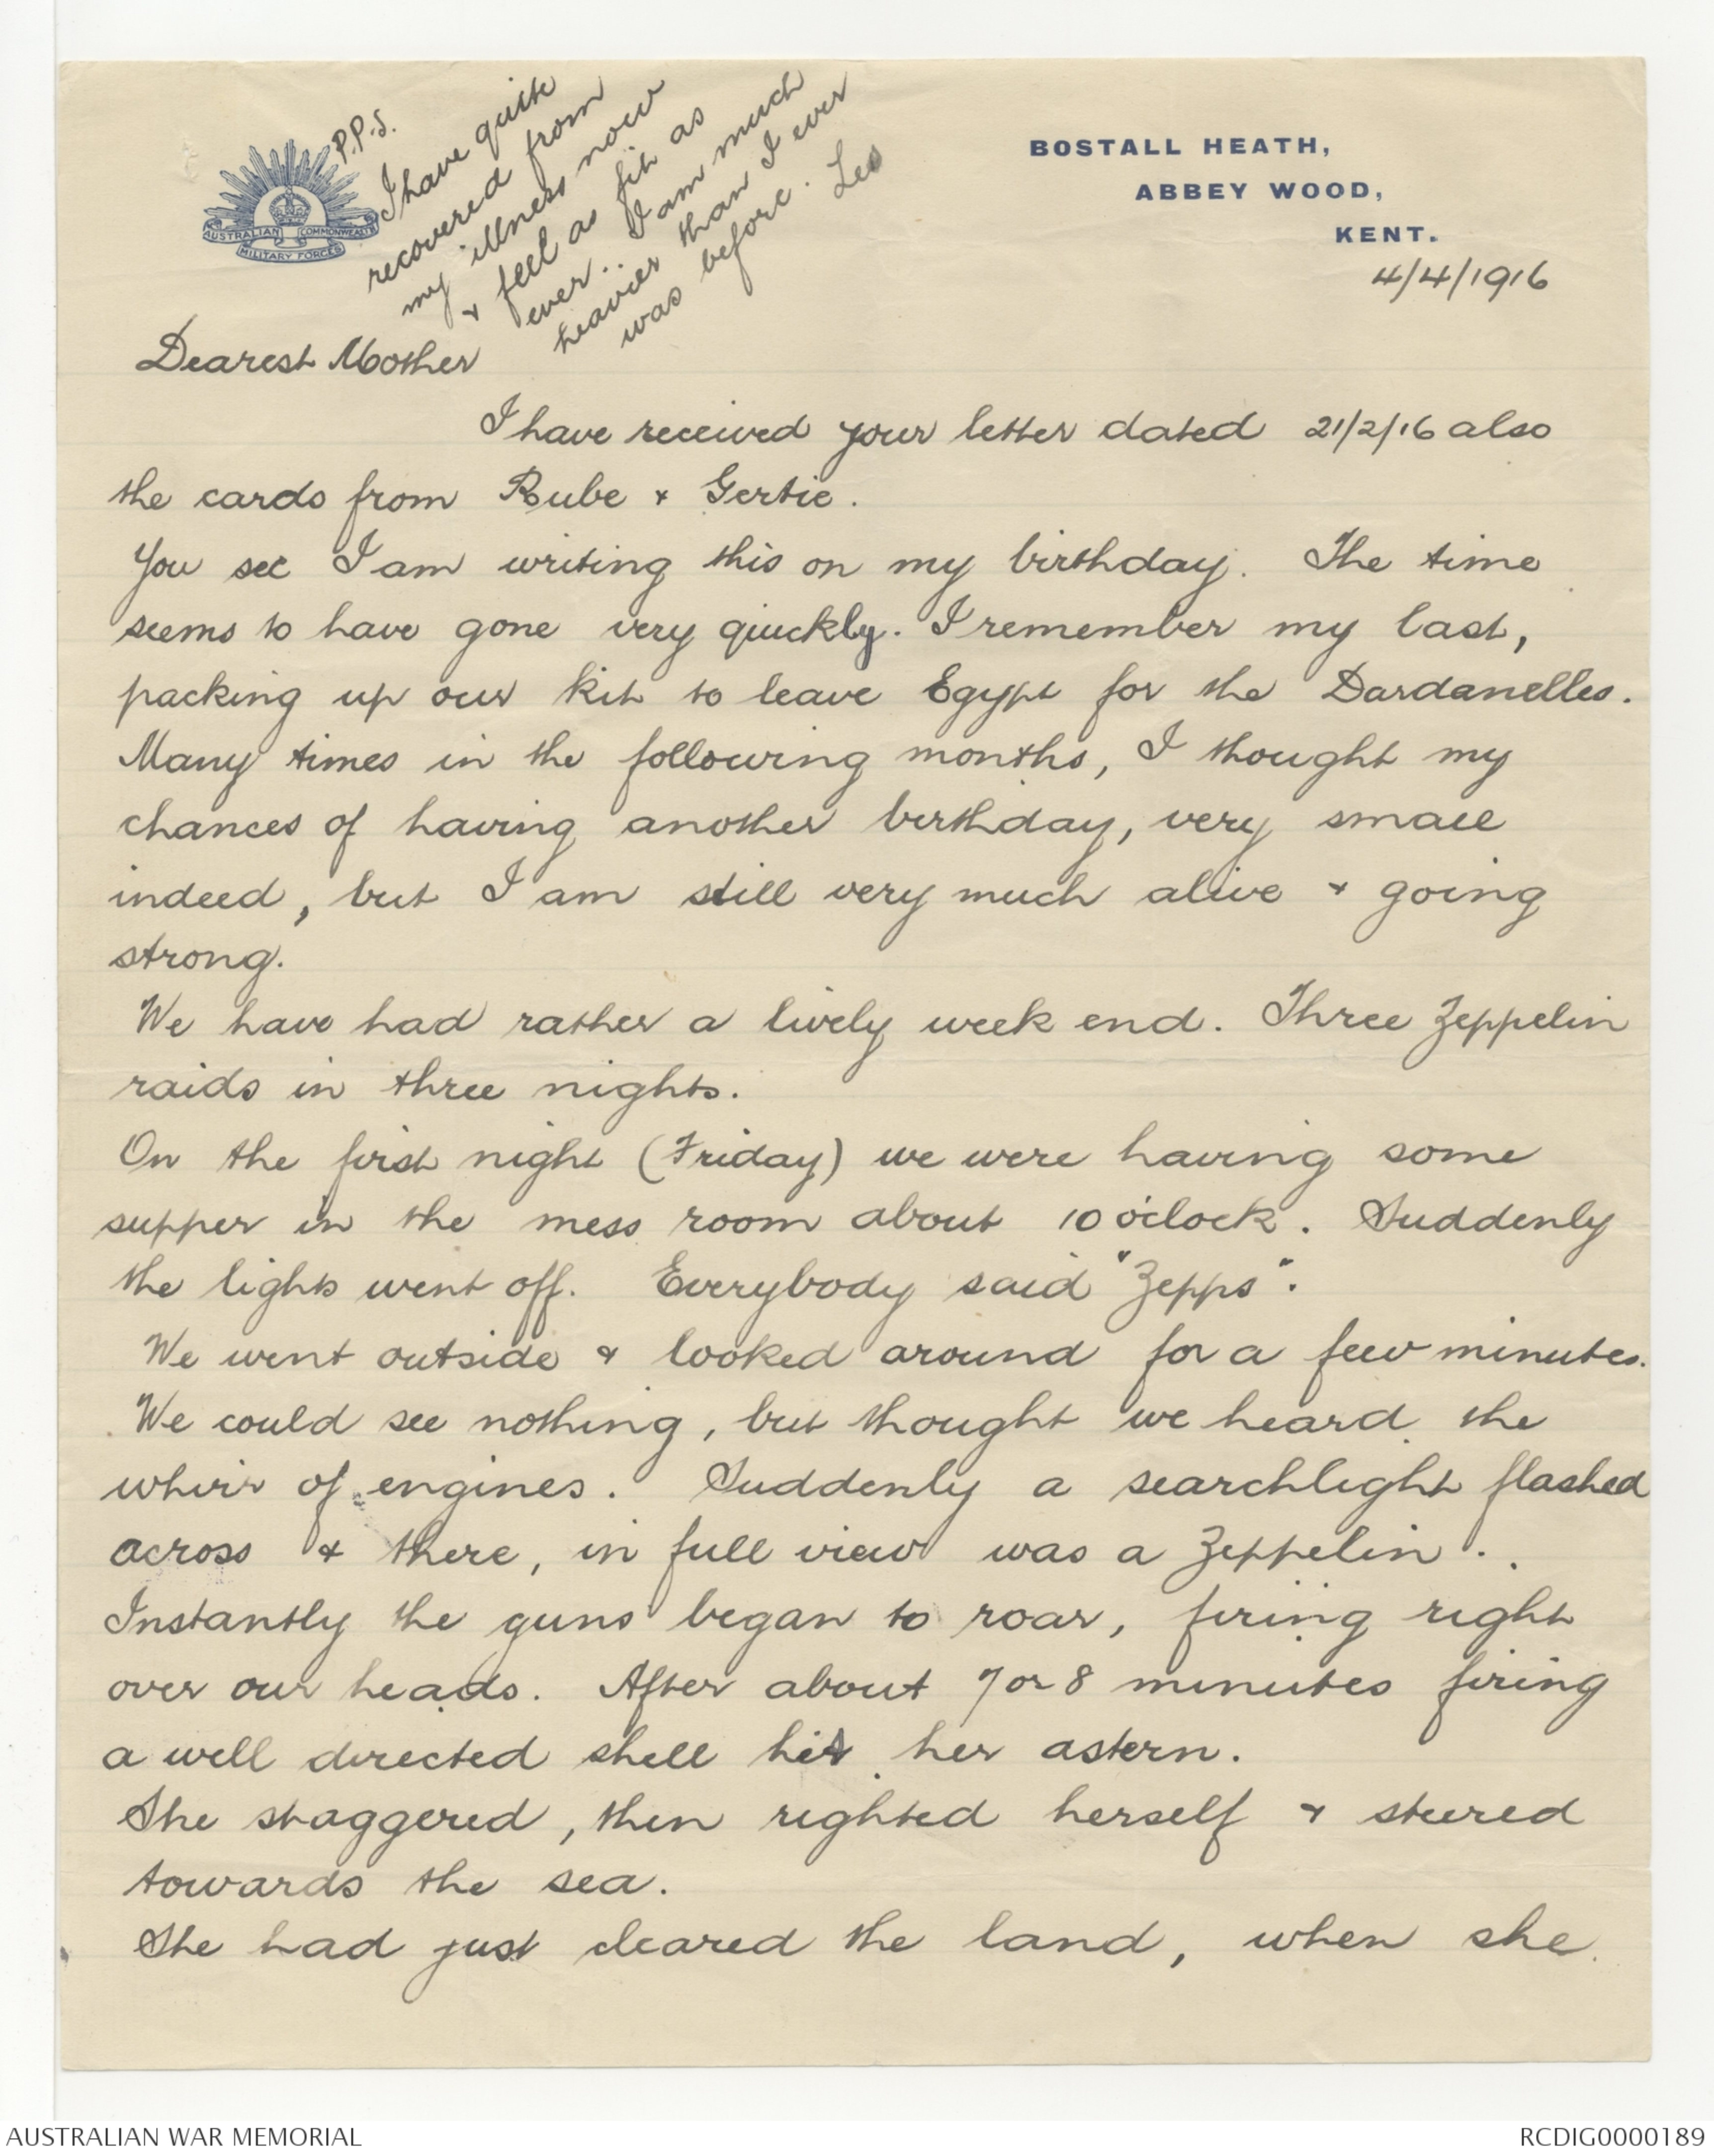 P.P.S.
I have quite
recovered from
my illness now
& feel as fit as
ever.. I am much
heavier than I ever
was before. Les
AUSTRALIAN COMMONWEALTH
MILITARY FORCES
BOSTALL HEATH,
ABBEY WOOD,
KENT.
4/4/1916
Dearest Mother
I have received your letter dated 21/2/16 also
the cards from Rube & Gertie.
You see I am writing this on my birthday. The time
seems to have gone very quickly. I remember my last,
packing up our kit to leave Egypt for the Dardanelles.
Many times in the following months, I thought my
chances of having another birthday, very small
indeed, but I am still very much alive & going
strong.
We have had rather a lively week end. Three Zeppelin
raids in three nights.
On the first night (Friday) we were having some
supper in the mess room about 10 o'clock. Suddenly
the lights went off. Everybody said "Zepps".
We went outside & looked around for a few minutes.
We could see nothing, but thought we heard the
whirr of engines. Suddenly a searchlight flashed
across & there, in full view was a Zeppelin.
Instantly the guns began to roar, firing right
over our heads. After about 7 or 8 minutes firing
a well directed shell hit her astern.
She staggered, then righted herself & steered
towards the sea.
She had just cleared the land, when she
AUSTRALIAN WAR MEMORIAL
RCDIG0000189